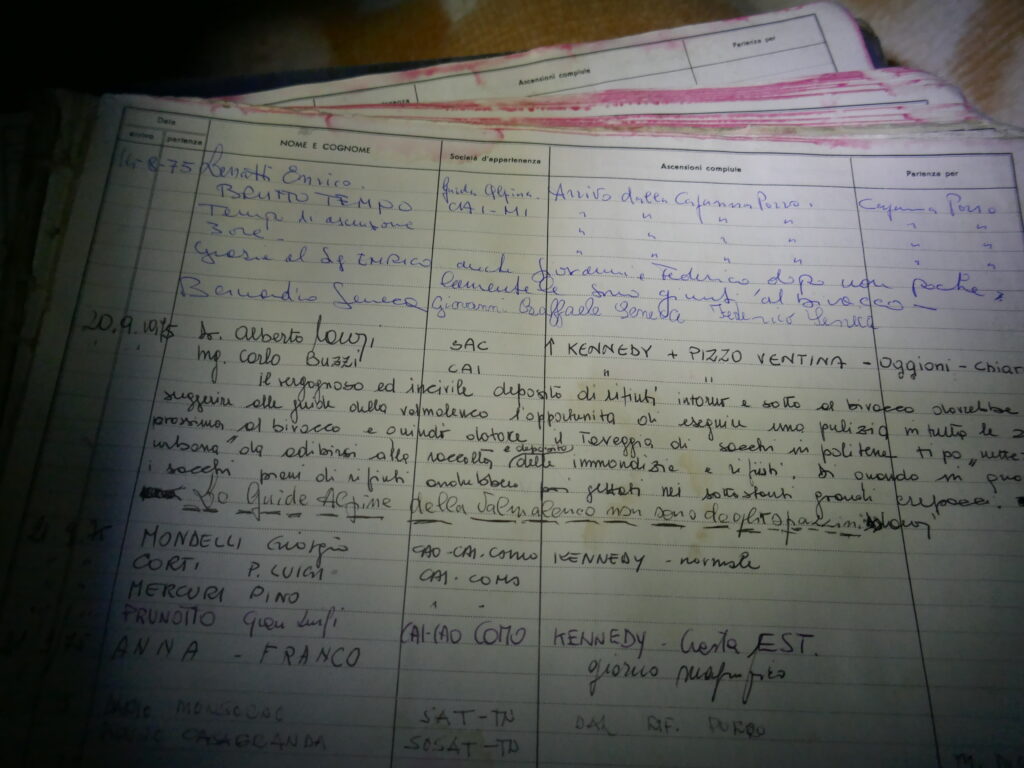 Partenza per
Ascensioni compiute
partenza
Data
arrivo partenza NOME E COGNOME Società d'appartenenza Ascensioni compiute Partenza per
14-8-75 Lenatti Enrico. Guida Alpina. Arrivo dalla Capanna Porro. Capanna Porro
BRUTTO TEMPO CAI-MI " " " " " "
Tempo di ascensione " " " " " "
3 ore. " " " " " "
Grazie al Sg ENRICO anche Giovanni e Federico dopo non poche
lamentele sono giunti al bivacco -
Bernardio Seneca Giovanni Raffaele Seneca Federico Seneca
20.9.1975 Dr. Alberto SAC ↑ KENNEDY + PIZZO VENTINA - Oggioni - Chiar
Ing. Carlo Buzzi CAI " "
il vergognoso ed incivile deposito di rifiuti intorno e sotto al bivacco dovrebbe
suggerire alle guide della valmalenco l'opportunità di eseguire una pulizia in tutta la
prossima al bivacco e quindi dotare il Taveggia di sacchi in politene tipo "nette
urbana" da adibirsi alla raccolta e deposito delle immondizie e rifiuti. Di quando in qua
i sacchi pieni di rifiuti andrebbero gettati nei sottostanti grandi crepacci.
Le Guide Alpine della Valmalenco non sono degli spazzini
21 9 75 MONDELLI Giorgio CAO-CAI-COMO KENNEDY - normale
CORTI P. LUIGI CAI. COMO
MERCURI PINO " "
PRUNOTTO Gian Luigi CAI-CAO COMO KENNEDY - Cresta EST.
ANNA - FRANCO giorno magnifico
SAT-TN DAL RIF. PORRO
CASAGRANDA SOSAT-TN